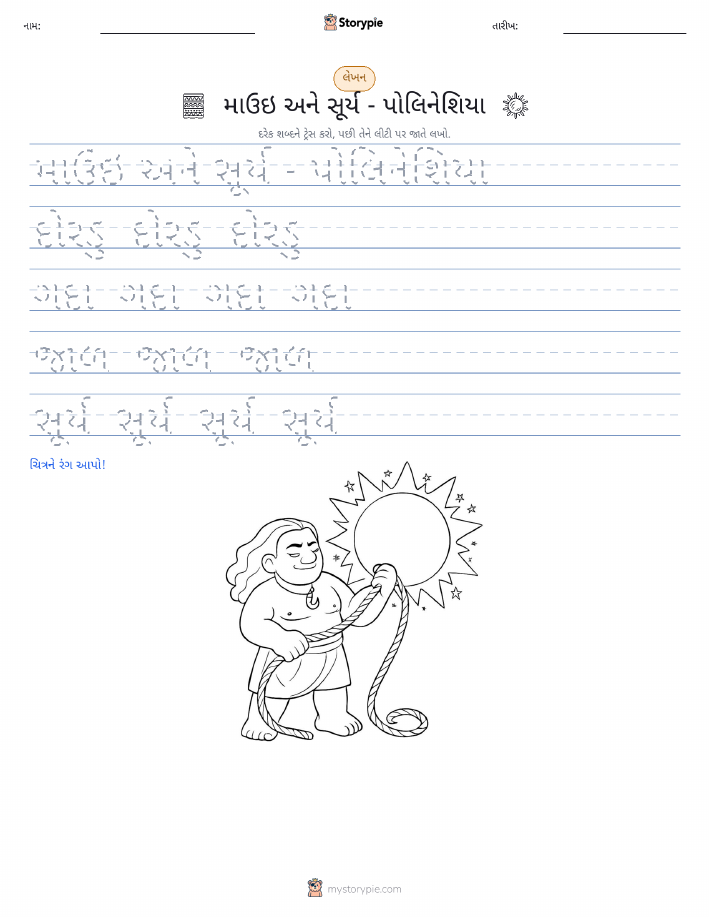 નામ: Storypie તારીખ:
લેખન
માઉઇ અને સૂર્ય - પોલિનેશિયા
દરેક શબ્દને ટ્રેસ કરો, પછી તેને લીટી પર જાતે લખો.
માઉઇ અને સૂર્ય - પોલિનેશિયા
દોરડુ દોરડુ દોરડુ
ગદા ગદા ગદા ગદા
જાળ જાળ જાળ
સૂર્ય સૂર્ય સૂર્ય સૂર્ય
ચિત્રને રંગ આપો!
mystorypie.com